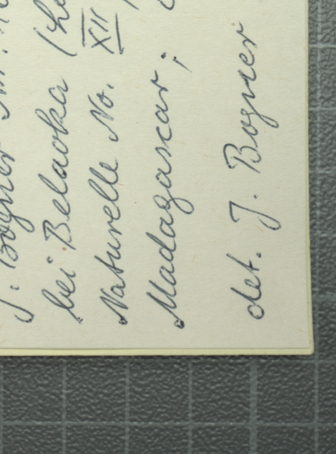 J. Bogner
bei Belaoka
Naturelle No. XII
Madagascar;
det. J. Bogner